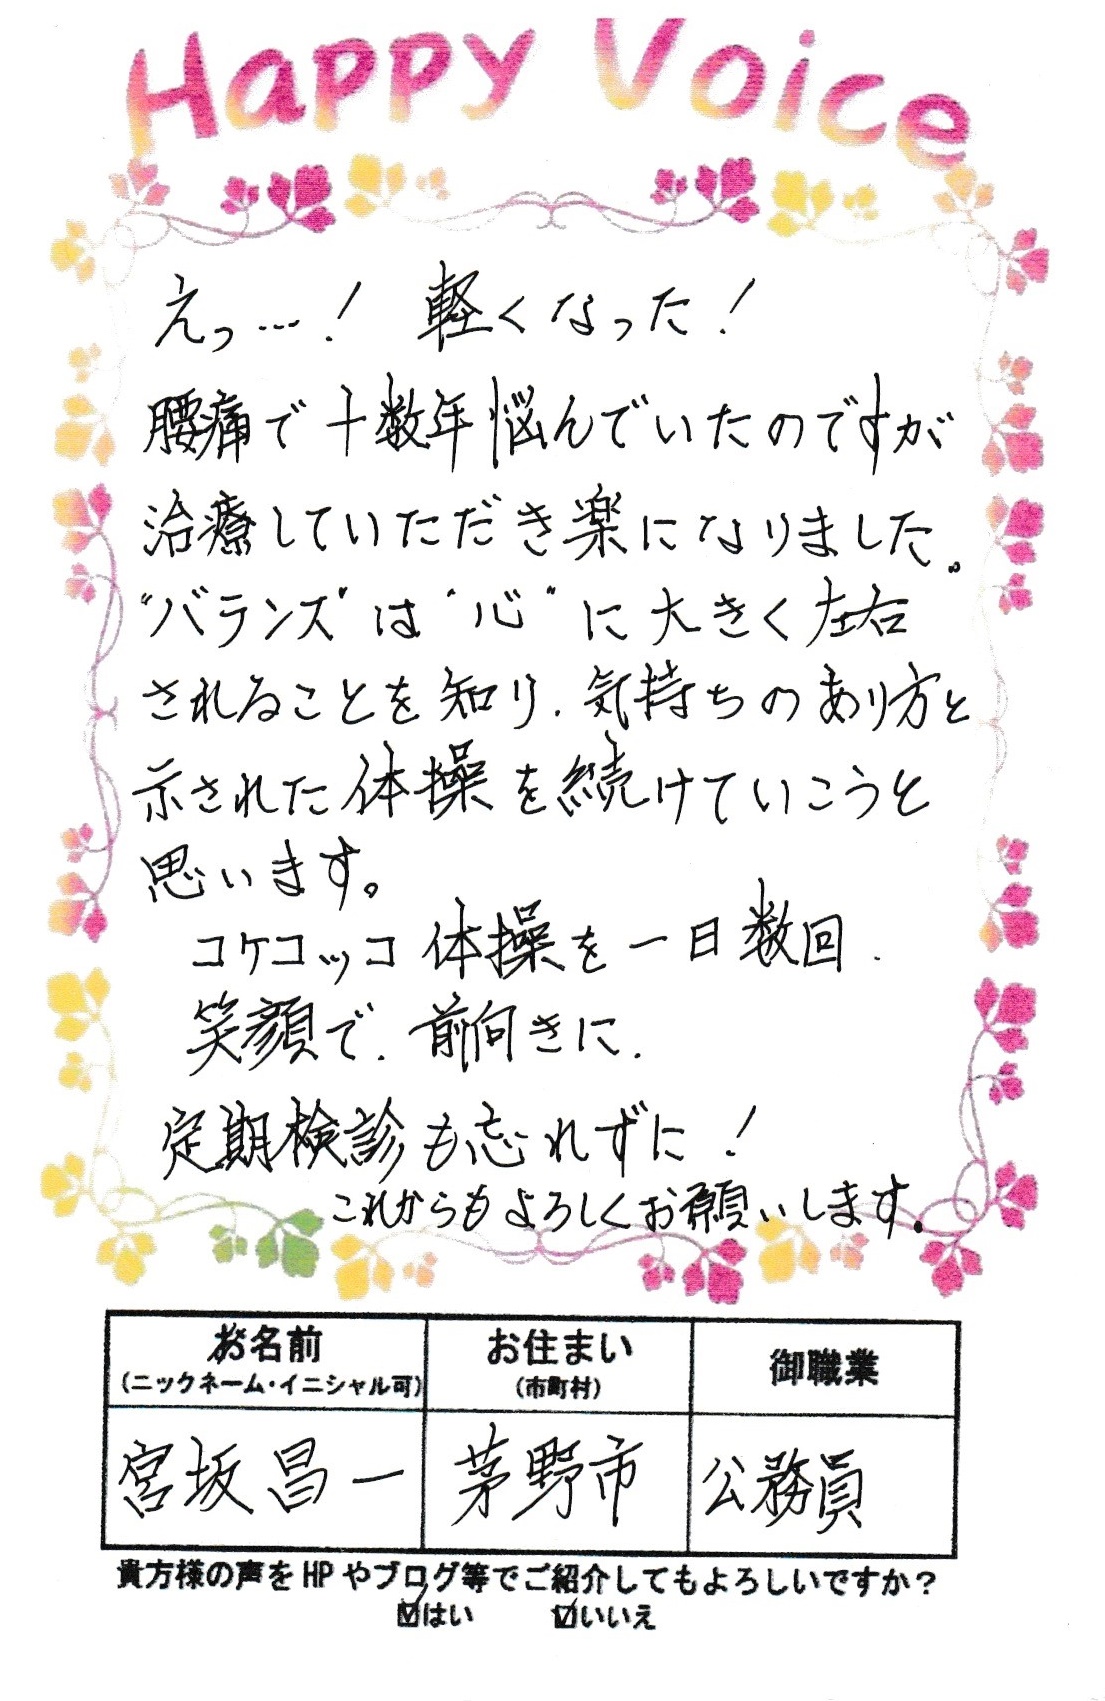 Happy Voice
えっ…! 軽くなった!
腰痛で十数年悩んでいたのですが
治療していただき楽になりました。
"バランス"は"心"に大きく左右
されることを知り、気持ちのあり方と
示された体操を続けていこうと
思います。
コケコッコ体操を一日数回、
笑顔で、前向きに、
定期検診も忘れずに!
これからもよろしくお願いします。
お名前 お住まい 御職業
(ニックネーム・イニシャル可) (市町村)
宮坂昌一 茅野市 公務員
貴方様の声をHPやブログ等でご紹介してもよろしいですか?
☑はい ☑いいえ